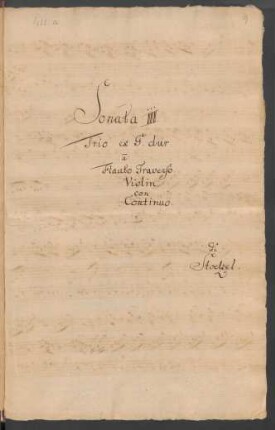 Sonata III
Trio ex G dur
à
Flauto Traverso
Violin
con
Continuo
di
Stoelzel.